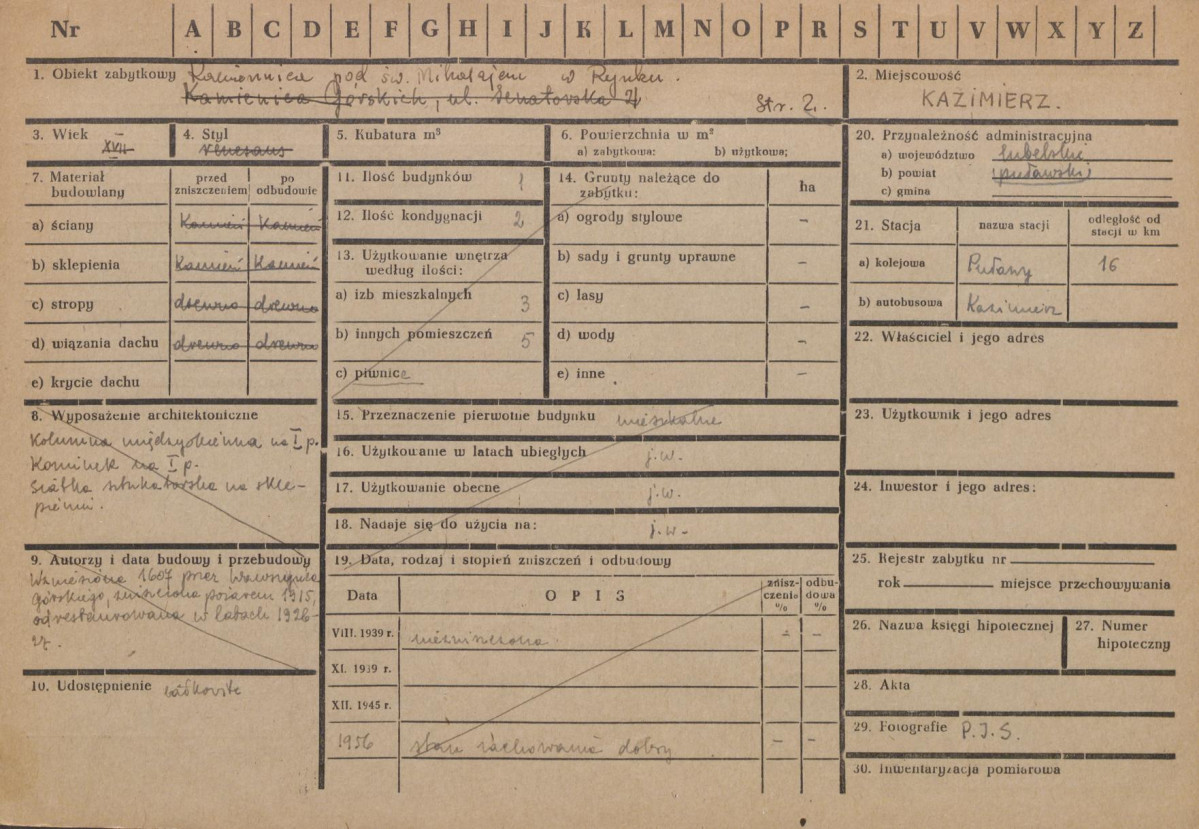 Nr A B C D E F G H I J K L M N O P R S T U V W X Y Z
1. Obiekt zabytkowy Kamienica pod św. Mikołajem w Rynku.
Kamienica Górskich, ul. Senatorska 21 Str. 2.
2. Miejscowość
KAZIMIERZ.
3. Wiek
XVII
4. Styl
renesans
5. Kubatura m³
6. Powierzchnia w m²
a) zabytkowa: b) użytkowa;
7. Materiał budowlany
przed zniszczeniem
po odbudowie
a) ściany Kamień Kamień
b) sklepienia Kamień Kamień
c) stropy drewno drewno
d) wiązania dachu drewno drewno
e) krycie dachu
8. Wyposażenie architektoniczne
Kolumna międzyokienna na I p.
Kominek na I p.
Siatka sztukatorska na skle-
pieniu.
9. Autorzy i data budowy i przebudowy
Wzniesiona 1607 przez Wawrzyńca
Górskiego, zniszczona pożarem 1915,
odrestaurowana w latach 1926-
27.
10. Udostępnienie całkowite
11. Ilość budynków 1
12. Ilość kondygnacji 2
13. Użytkowanie wnętrza
według ilości:
a) izb mieszkalnych 3
b) innych pomieszczeń 5
c) piwnice
14. Grunty należące do
zabytku: ha
a) ogrody stylowe –
b) sady i grunty uprawne –
c) lasy –
d) wody –
e) inne –
15. Przeznaczenie pierwotne budynku mieszkalne
16. Użytkowanie w latach ubiegłych j.w.
17. Użytkowanie obecne j.w.
18. Nadaje się do użycia na: j.w-
19. Data, rodzaj i stopień zniszczeń i odbudowy
Data OPIS znisz-czenie % odbu-dowa %
VIII. 1939 r. niezniszczona – –
XI. 1939 r.
XII. 1945 r.
1956 stan zachowania dobry – –
20. Przynależność administracyjna
a) województwo lubelskie
b) powiat puławski
c) gmina
21. Stacja nazwa stacji odległość od stacji w km
a) kolejowa Puławy 16
b) autobusowa Kazimierz
22. Właściciel i jego adres
23. Użytkownik i jego adres
24. Inwestor i jego adres:
25. Rejestr zabytku nr
rok miejsce przechowywania
26. Nazwa księgi hipotecznej
27. Numer hipoteczny
28. Akta
29. Fotografie P.I.S.
30. Inwentaryzacja pomiarowa